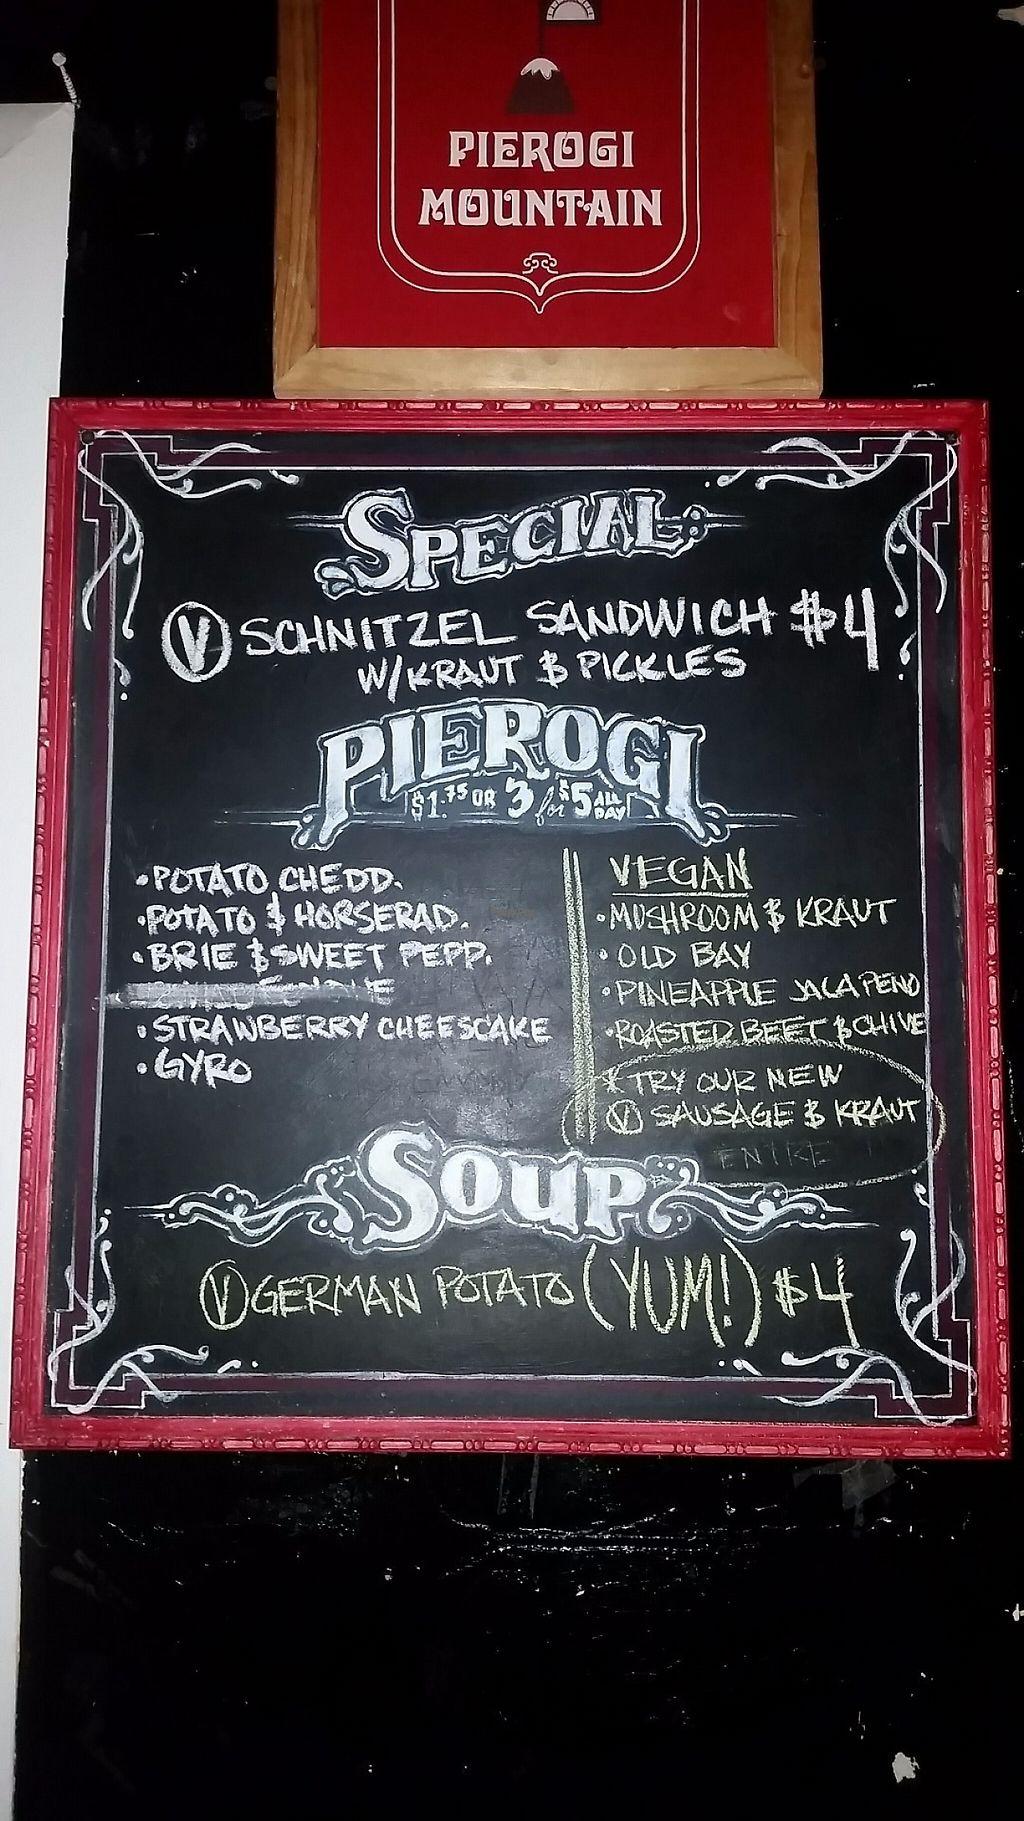 PIEROGI
MOUNTAIN
SPECIAL
Ⓥ SCHNITZEL SANDWICH $4
W/KRAUT & PICKLES
PIEROGI
$1.75 OR 3 for $5 ALL DAY
• POTATO CHEDD.
• POTATO & HORSERAD.
• BRIE & SWEET PEPP.
• STRAWBERRY CHEESCAKE
• GYRO
VEGAN
• MUSHROOM & KRAUT
• OLD BAY
• PINEAPPLE JALAPENO
• ROASTED BEET & CHIVE
* TRY OUR NEW
Ⓥ SAUSAGE & KRAUT
SOUP
Ⓥ GERMAN POTATO (YUM!) $4